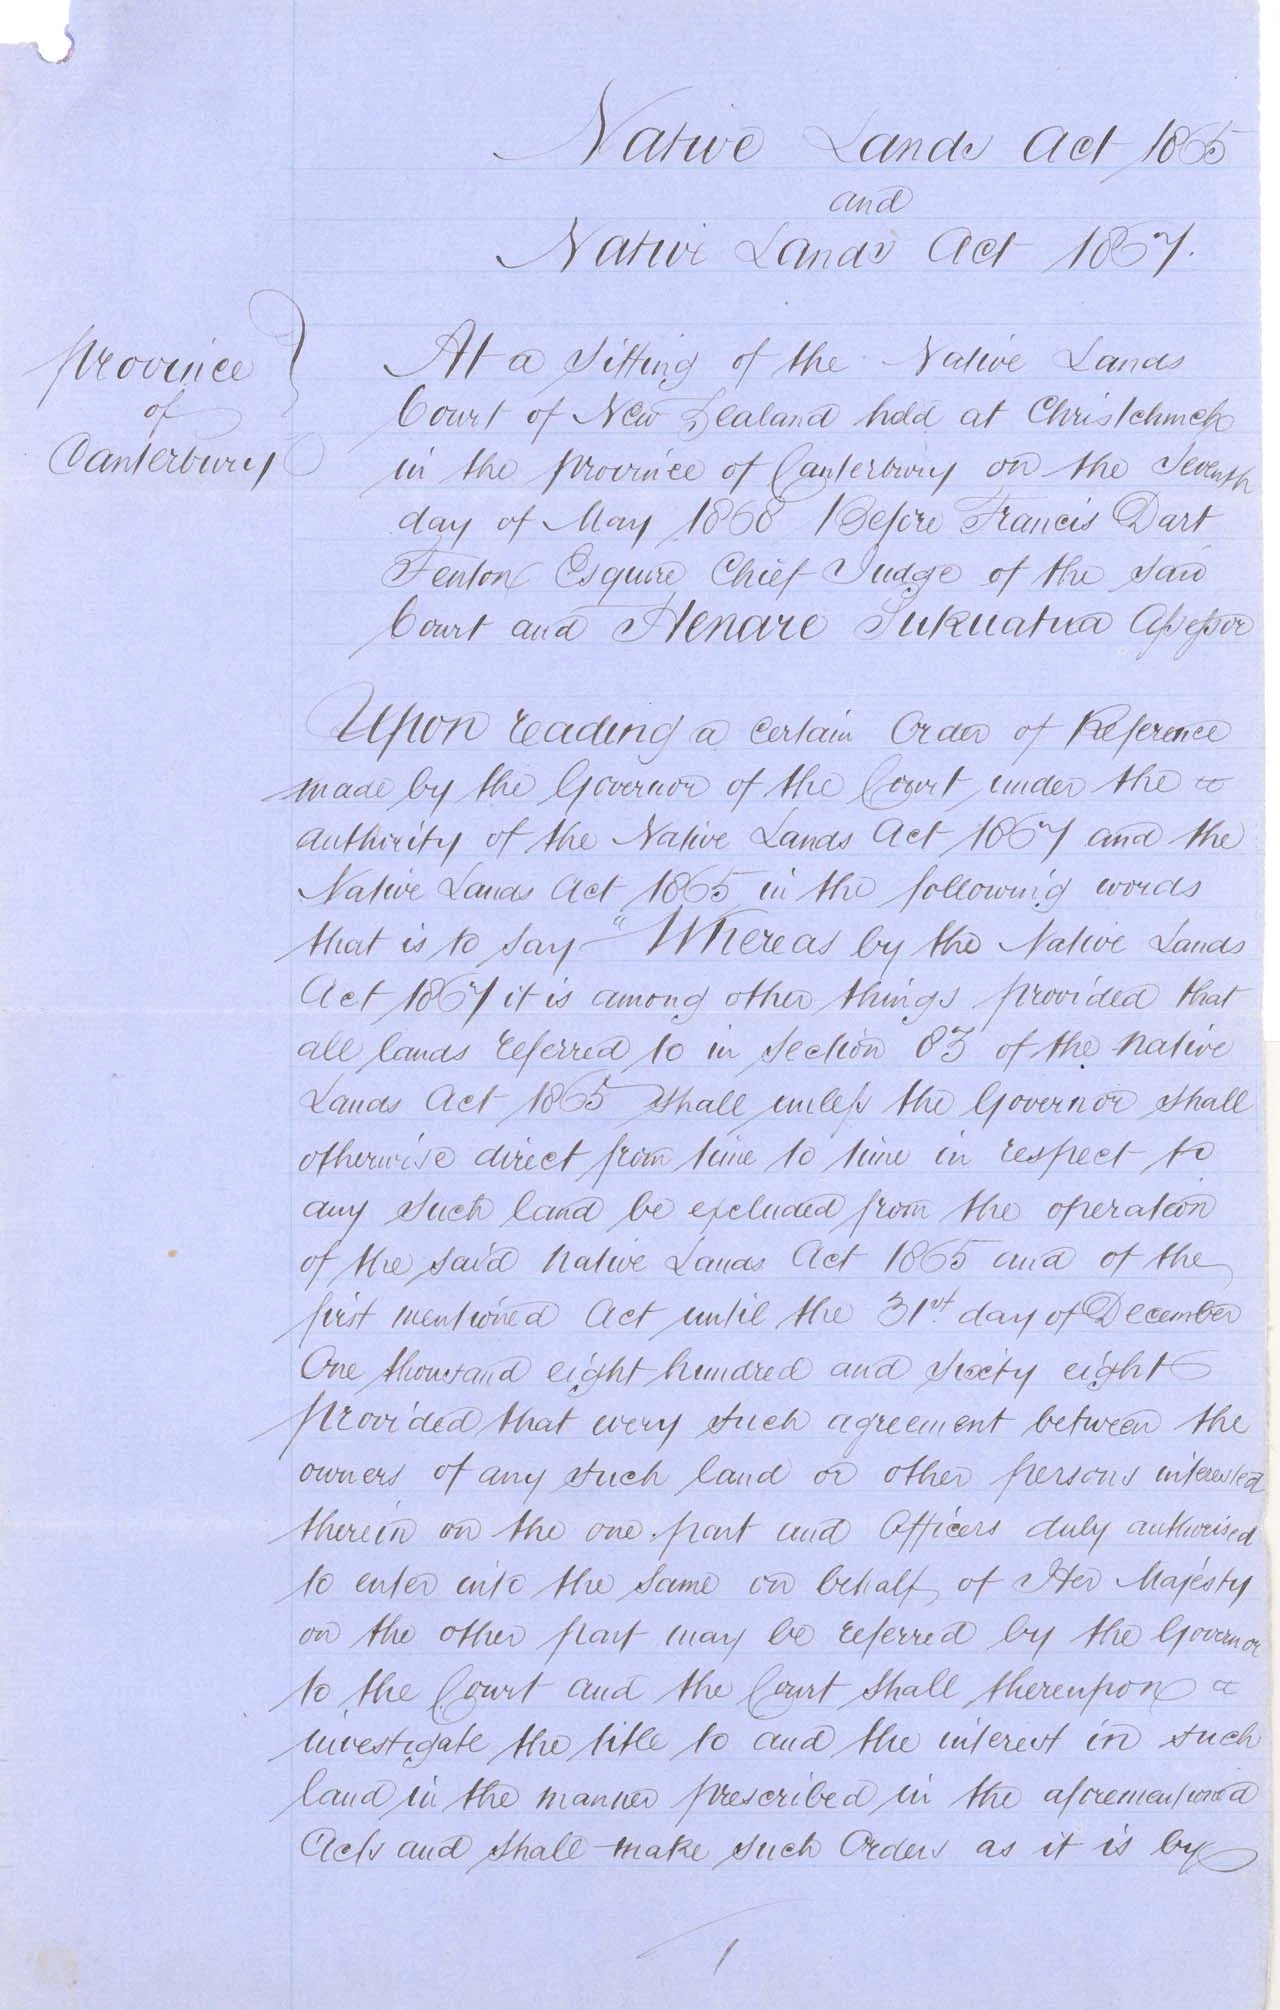 Native Lands Act 1865
and
Native Lands Act 1867.
Province
of
Canterbury
At a sitting of the Native Lands
Court of New Zealand held at Christchurch
in the province of Canterbury on the Seventh
day of May 1868 Before Francis Dart
Fenton Esquire Chief Judge of the said
Court and Henare Pukuatua Assessor
Upon reading a certain Order of Reference
made by the Governor of the Court under the
authority of the Native Lands Act 1867 and the
Native Lands Act 1865 in the following words
that is to say "Whereas by the Native Lands
Act 1867 it is among other things provided that
all lands referred to in section 83 of the native
Lands Act 1865 shall unless the Governor shall
otherwise direct from time to time in respect to
any such land be excluded from the operation
of the said native Lands Act 1865 and of the
first mentioned Act until the 31st. day of December
One thousand eight hundred and sixty eight
provided that every such agreement between the
owners of any such land or other persons interested
therein on the one part and Officers duly authorised
to enter into the same on behalf of Her Majesty
on the other part may be referred by the Governor
to the Court and the Court shall thereupon
investigate the title to and the interest in such
land in the manner prescribed in the aforementioned
Acts and shall make such Orders as it is by
1